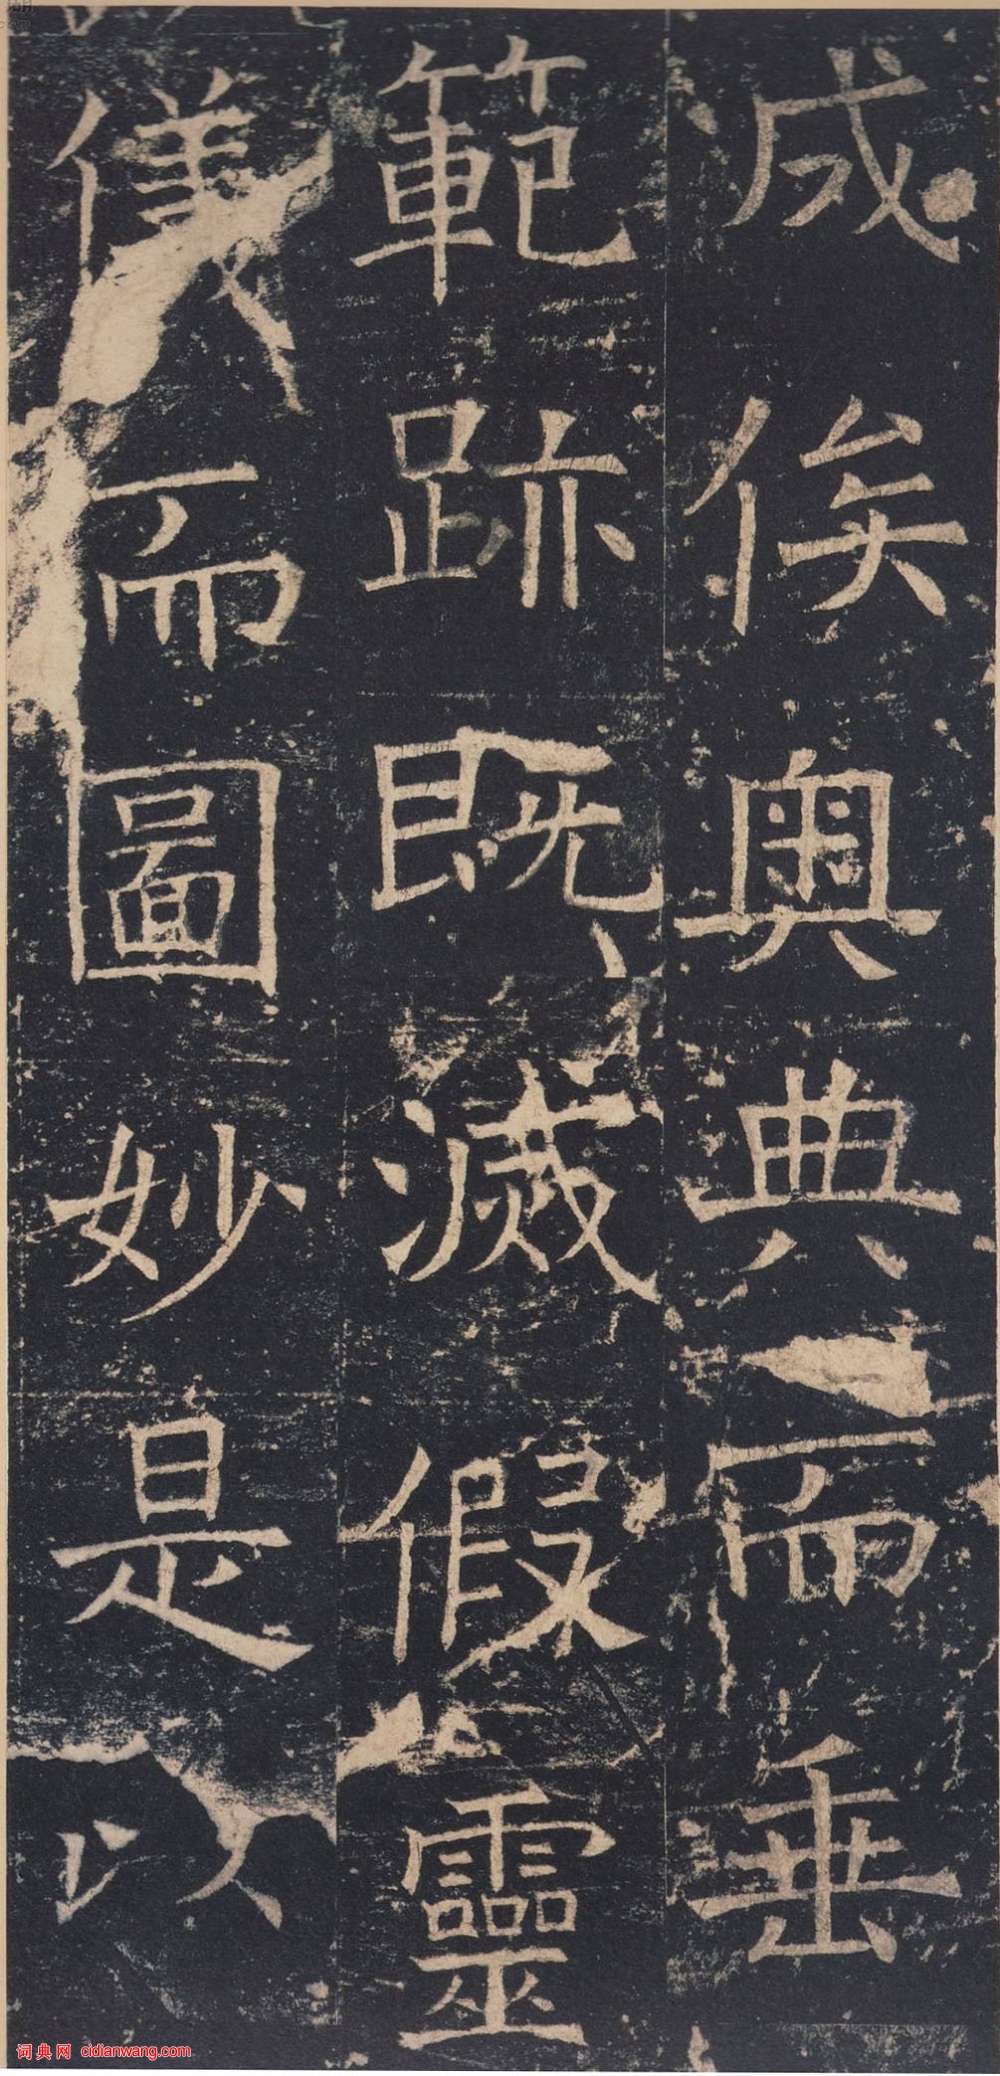 成俟奧典而垂
範跡既滅假靈
儀而圖妙是以
词典网 cidianwang.com